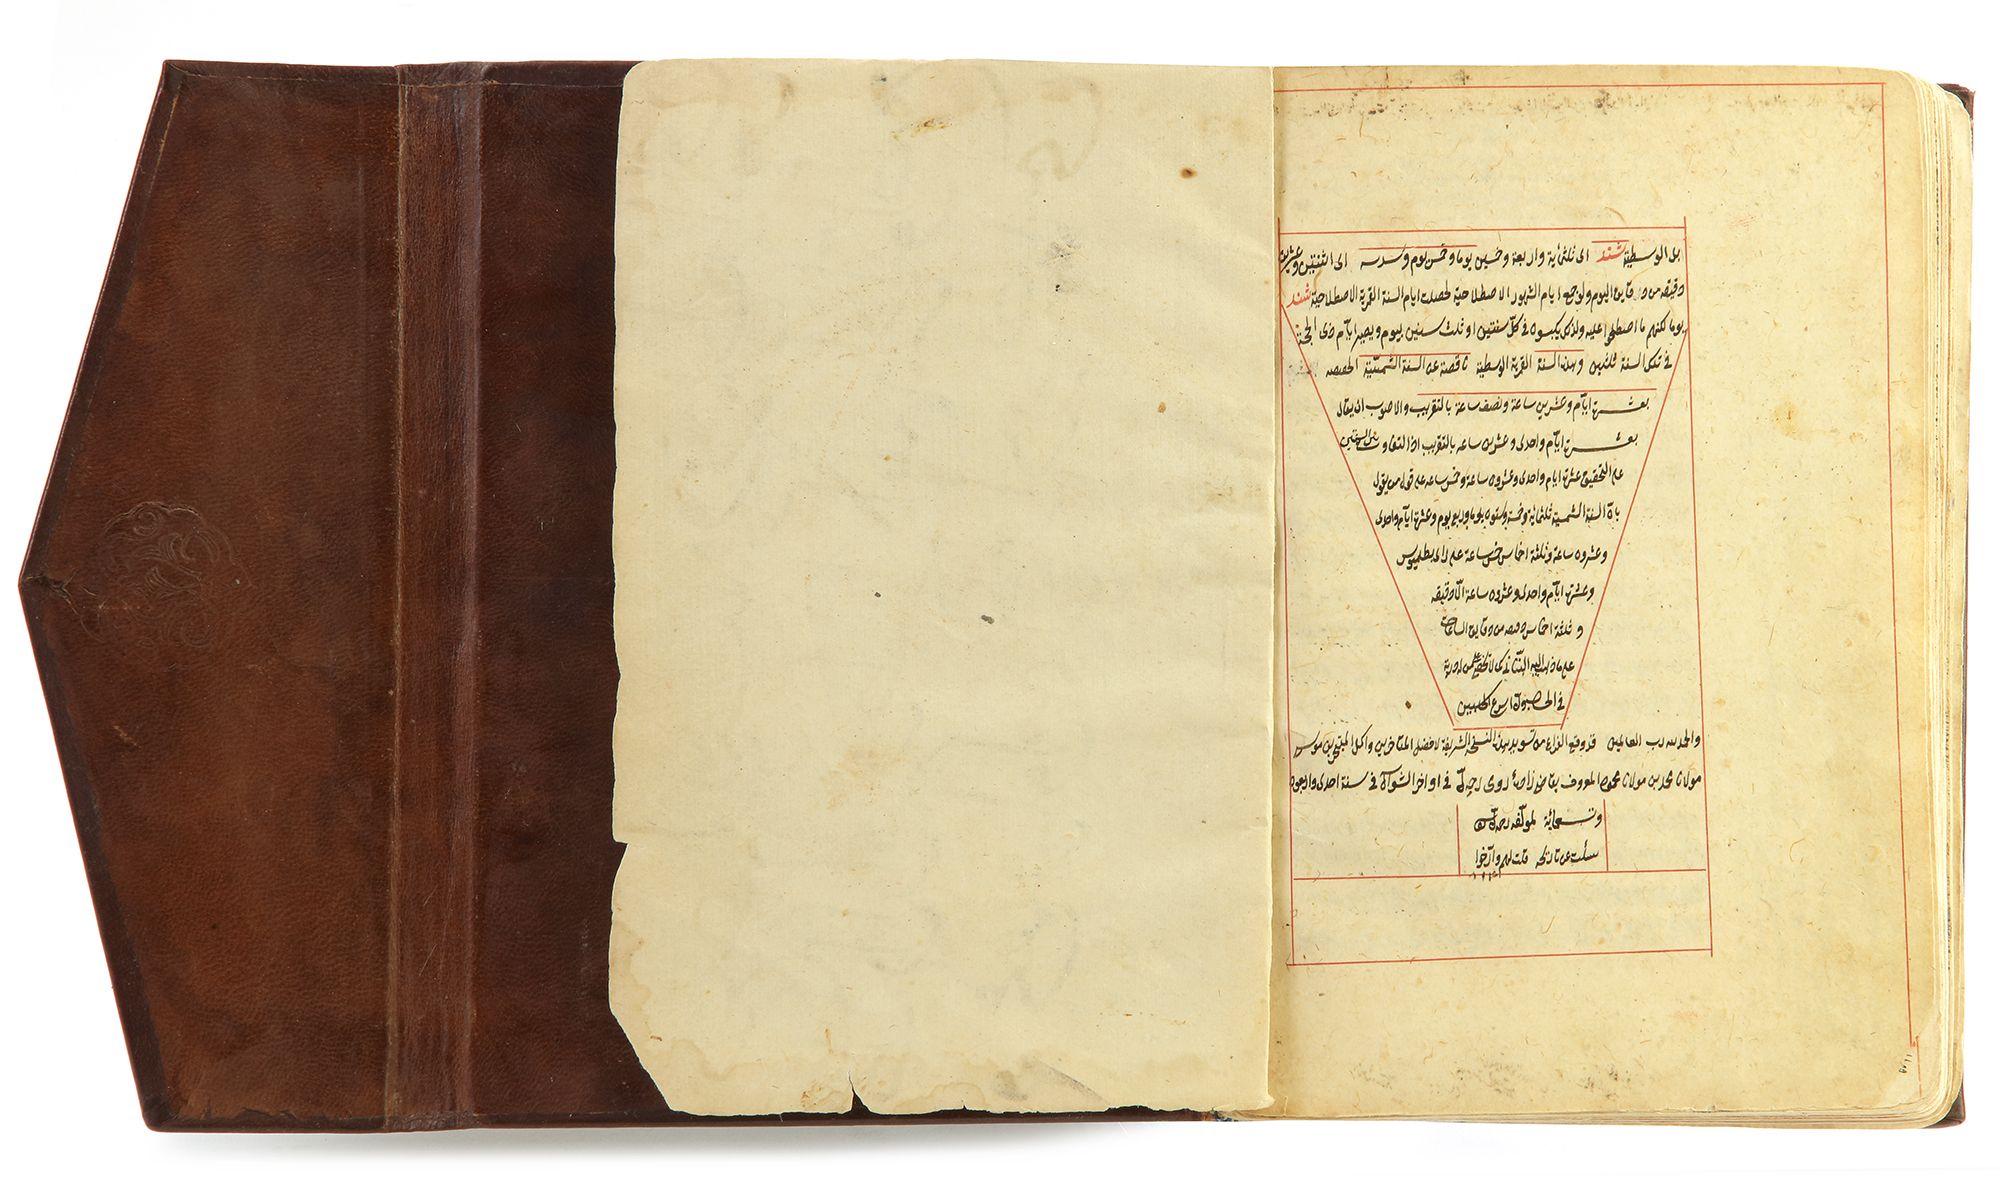 بل الوسطية شند الى ثلثمائة واربعة وخمسين يوما وخمس يوم وسدسه الى اثنتين وعشرين
دقيقه من دقايق اليوم ولو جمع ايام الشهور الاصطلاحية لحصلت ايام السنة القمرية الاصطلاحية شند
يوما لكنهم ما اصطلحوا عليه ولذلك يكبسون في كل سنتين او ثلث سنين بيوم ويصير ايام ذى الحجة
في تلك السنة ثلثين وهذه السنة القمرية الوسطية ناقصة عن السنة الشمسية
بعشرة ايام وعشرين ساعة ونصف ساعة بالتقريب والاصوب ان يقال
بعشرة ايام واحدى وعشرين ساعه بالتقريب اذ التفاوت بين السنتين
على التحقيق عشرة ايام واحدى وعشرون ساعة وخمس ساعه على قول من يقول
بان السنة الشمسية ثلثمائة وخمسة وستون يوما وربع يوم وعشرة ايام واحدى
وعشرون ساعة وثلثة اخماس خمس ساعة على راى بطلميوس
وعشرة ايام واحدى وعشرون ساعة الا دقيقه
وثلثة اخماس دقيقه من دقايق الساعات
على ما ذهب اليه البتاني كما لا يخفى على من له دربة
في الحساب
والحمد لله رب العالمين قد وقع الفراغ من تسويد هذه النسخة الشريفة لافضل المتاخرين واكمل المتبحرين
مولانا محمد بن مولانا محمود المعروف بقاضى زاده رومى رحمه الله في اواخر الشوال في سنة احدى واربعون
وتسعمائة لمؤلفه رحمه الله
سئلت عن تاريخه قلت لهم وارخوا